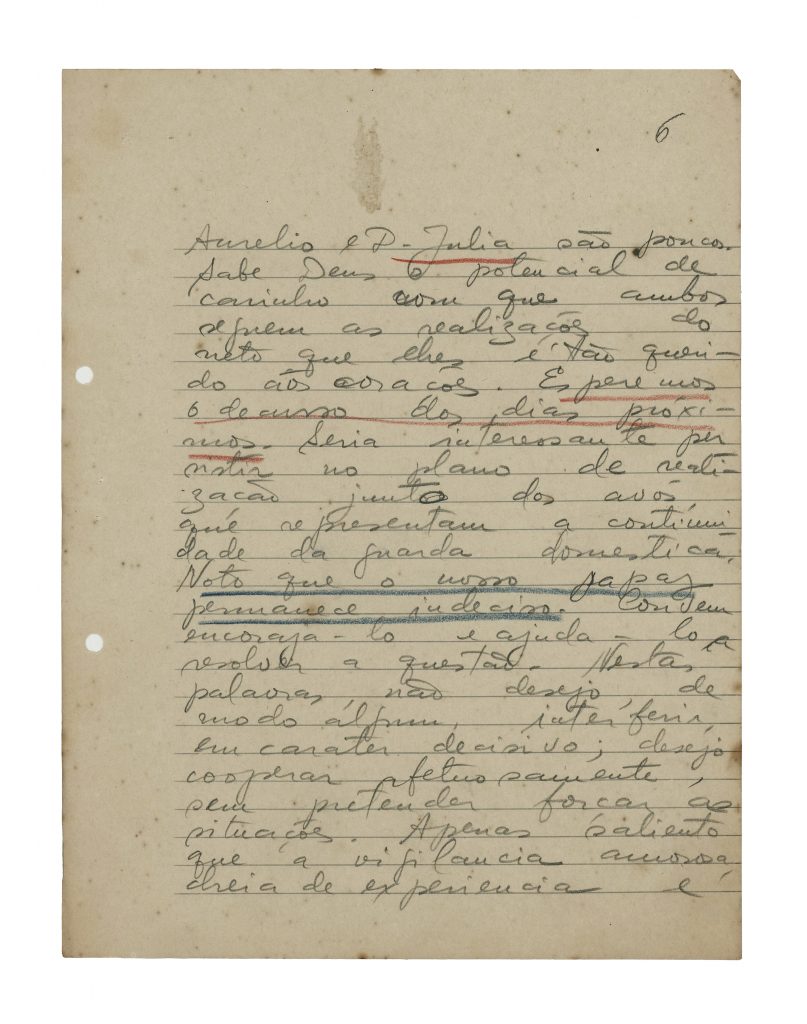 6
Aurelio e D. Julia são poucos.
Sabe Deus o potencial de
carinho com que ambos
seguem as realizações do
neto que lhes é tão queri-
do aos corações. Esperemos
o decurso dos dias próxi-
mos. Seria interessante per
sistir no plano de reali-
zação junto dos avós,
que representam a continui
dade da guarda domestica.
Noto que o nosso rapaz
permanece indeciso. Convem
encoraja-lo e ajuda-lo a
resolver a questão. Nestas
palavras, não desejo, de
modo algum, interferir,
em carater decisivo; desejo
cooperar afetuosamente,
sem pretender forçar as
situações. Apenas saliento
que a vigilancia amorosa,
cheia de experiencia e